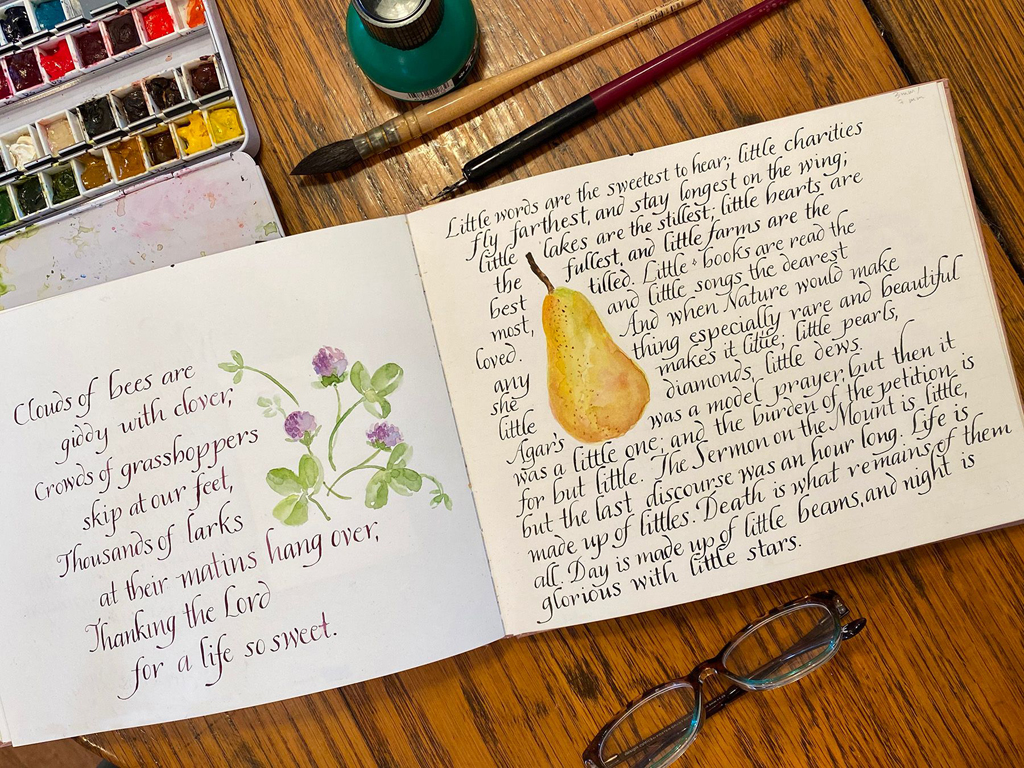 Clouds of bees are
giddy with clover,
Crowds of grasshoppers
skip at our feet,
Thousands of larks
at their matins hang over,
Thanking the Lord
for a life so sweet.
Little words are the sweetest to hear; little charities
fly farthest, and stay longest on the wing;
little lakes are the stillest; little hearts are
the fullest, and little farms are the
best tilled. Little books are read the
most, and little songs the dearest
loved. And when Nature would make
any thing especially rare and beautiful
she makes it little; little pearls,
little diamonds, little dews.
Agar's was a model prayer; but then it
was a little one; and the burden of the petition is
for but little. The Sermon on the Mount is little,
but the last discourse was an hour long. Life is
made up of littles. Death is what remains of them
all. Day is made up of little beams, and night is
glorious with little stars.